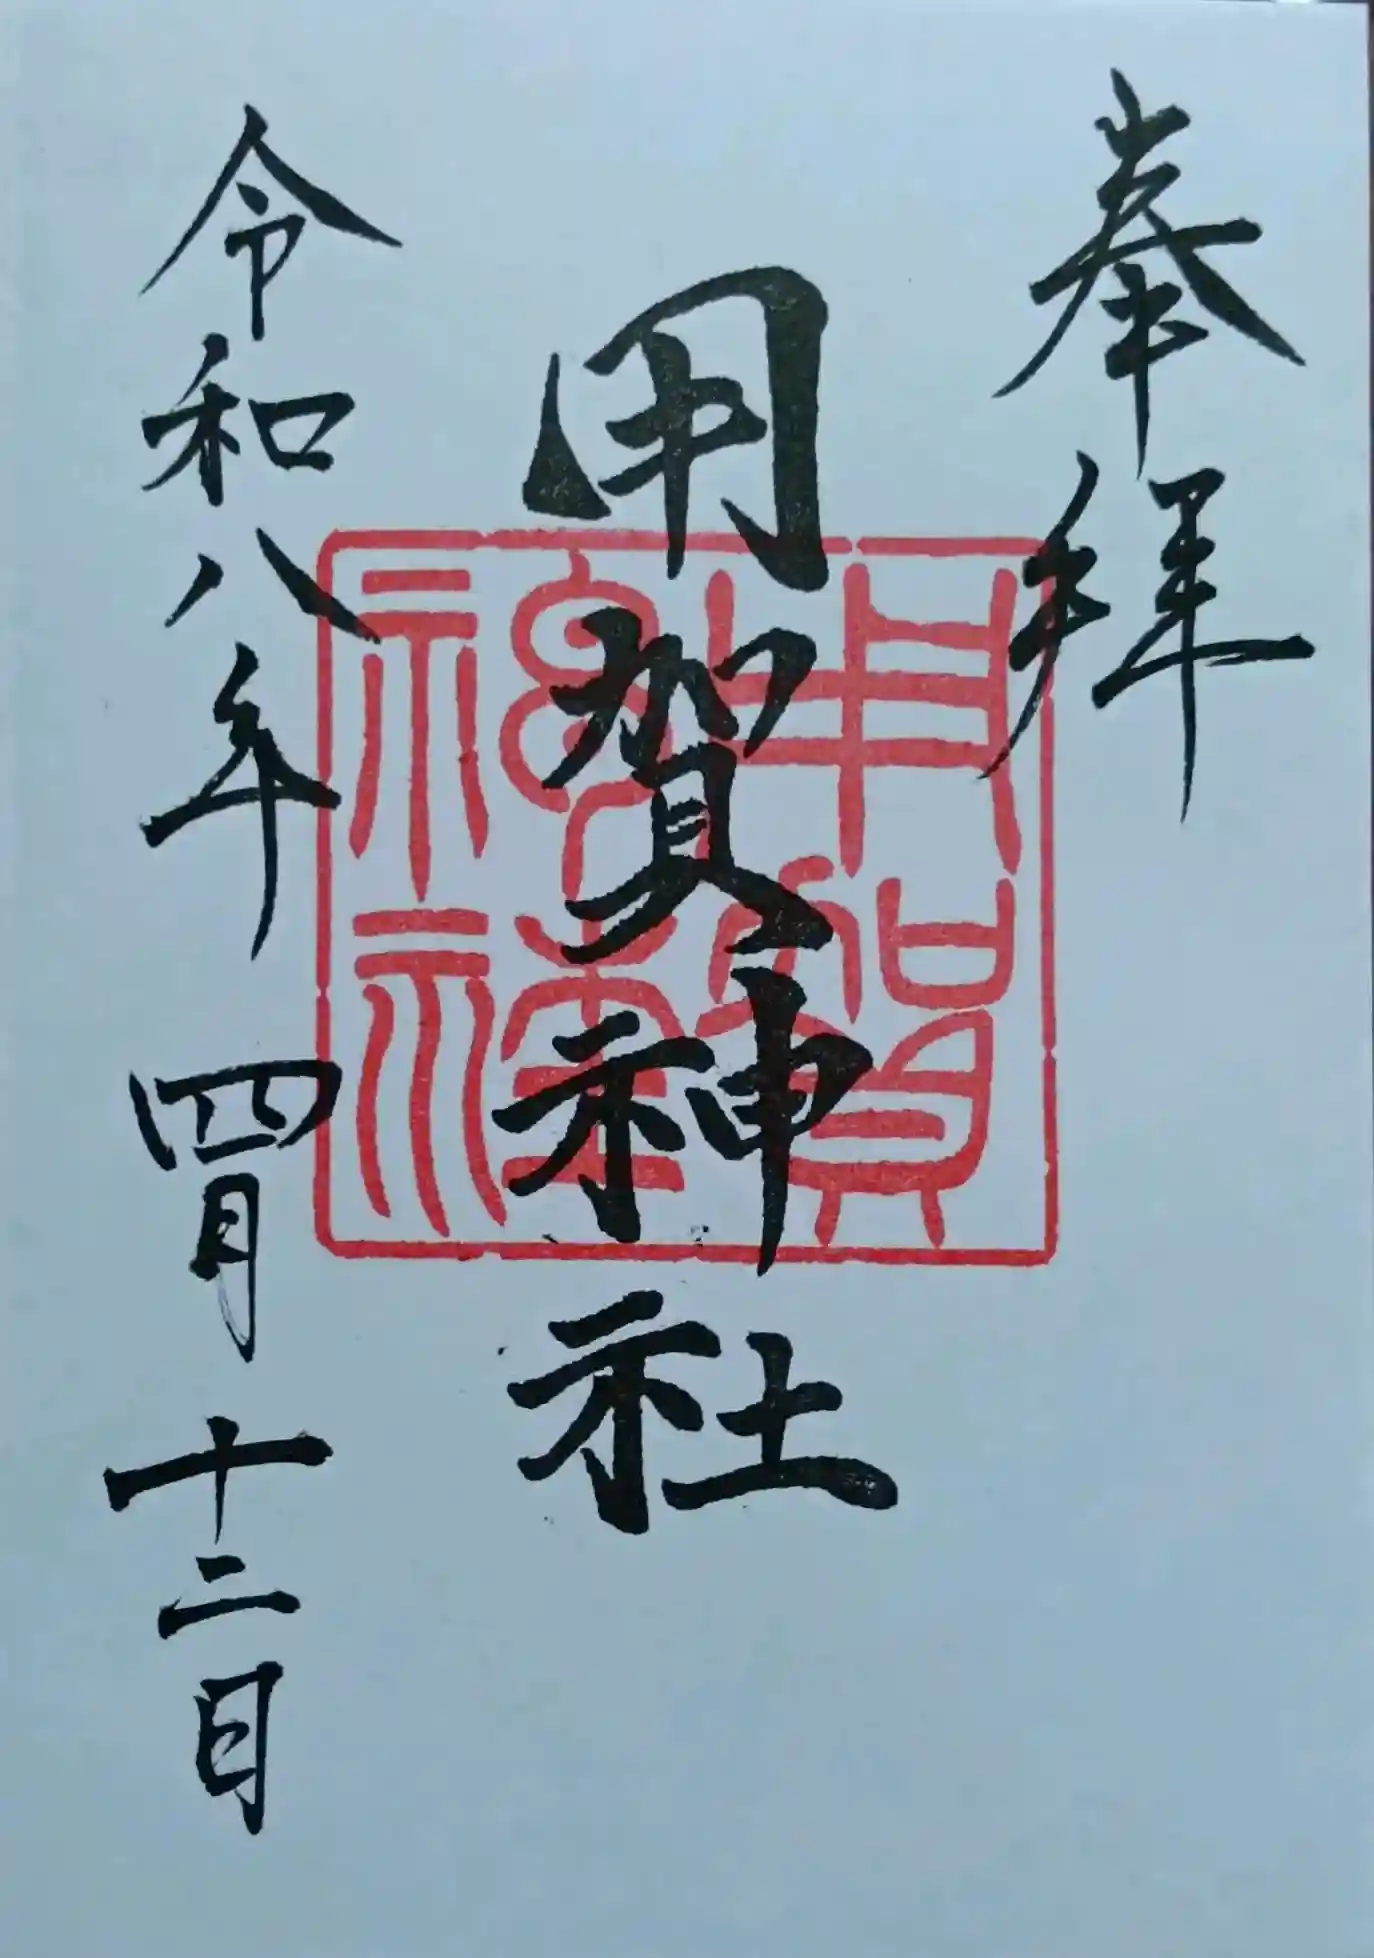 奉拝
用賀神社
用賀神社
令和八年 四月 十二日